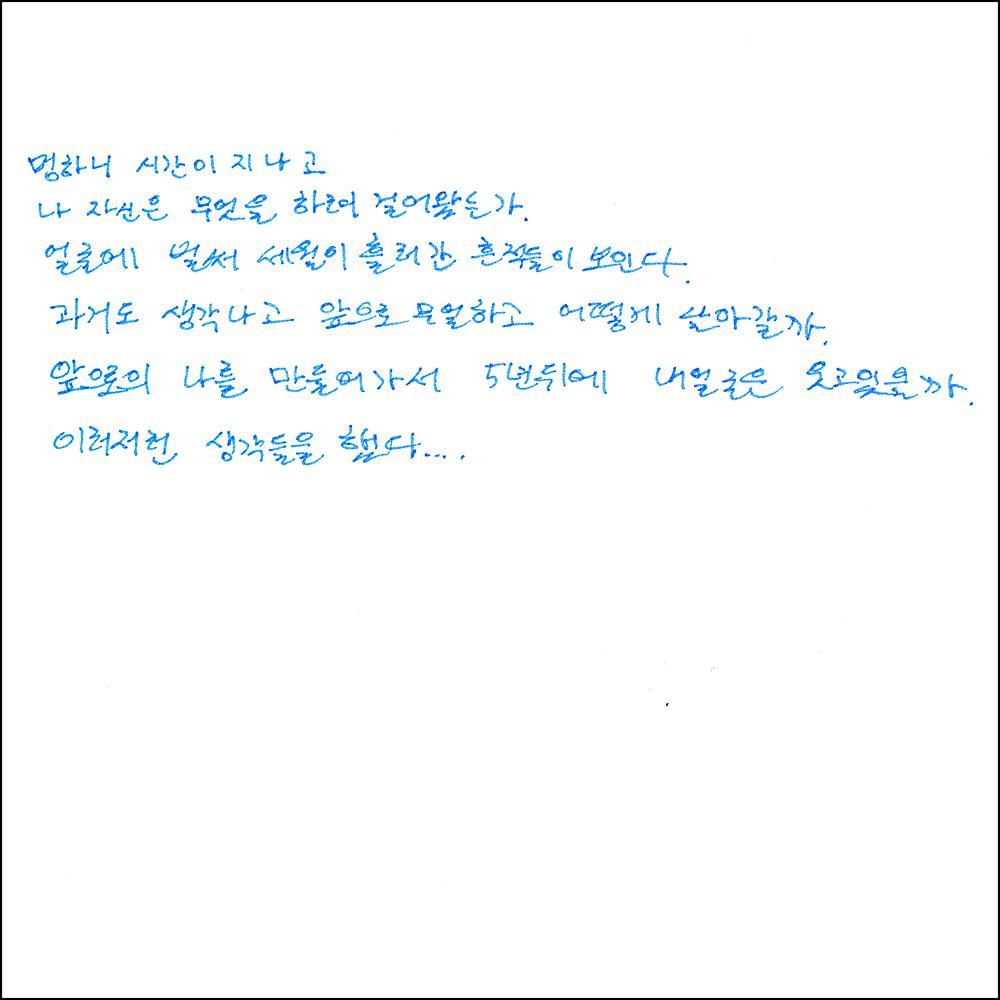 멍하니 시간이 지나고
나 자신은 무엇을 하려 걸어왔는가.
얼굴에 벌써 세월이 흘러간 흔적들이 보인다.
과거도 생각나고 앞으로 무얼하고 어떻게 살아갈까.
앞으로의 나를 만들어가서 5년뒤에 내얼굴은 웃고있을까.
이러저런 생각들을 했다....